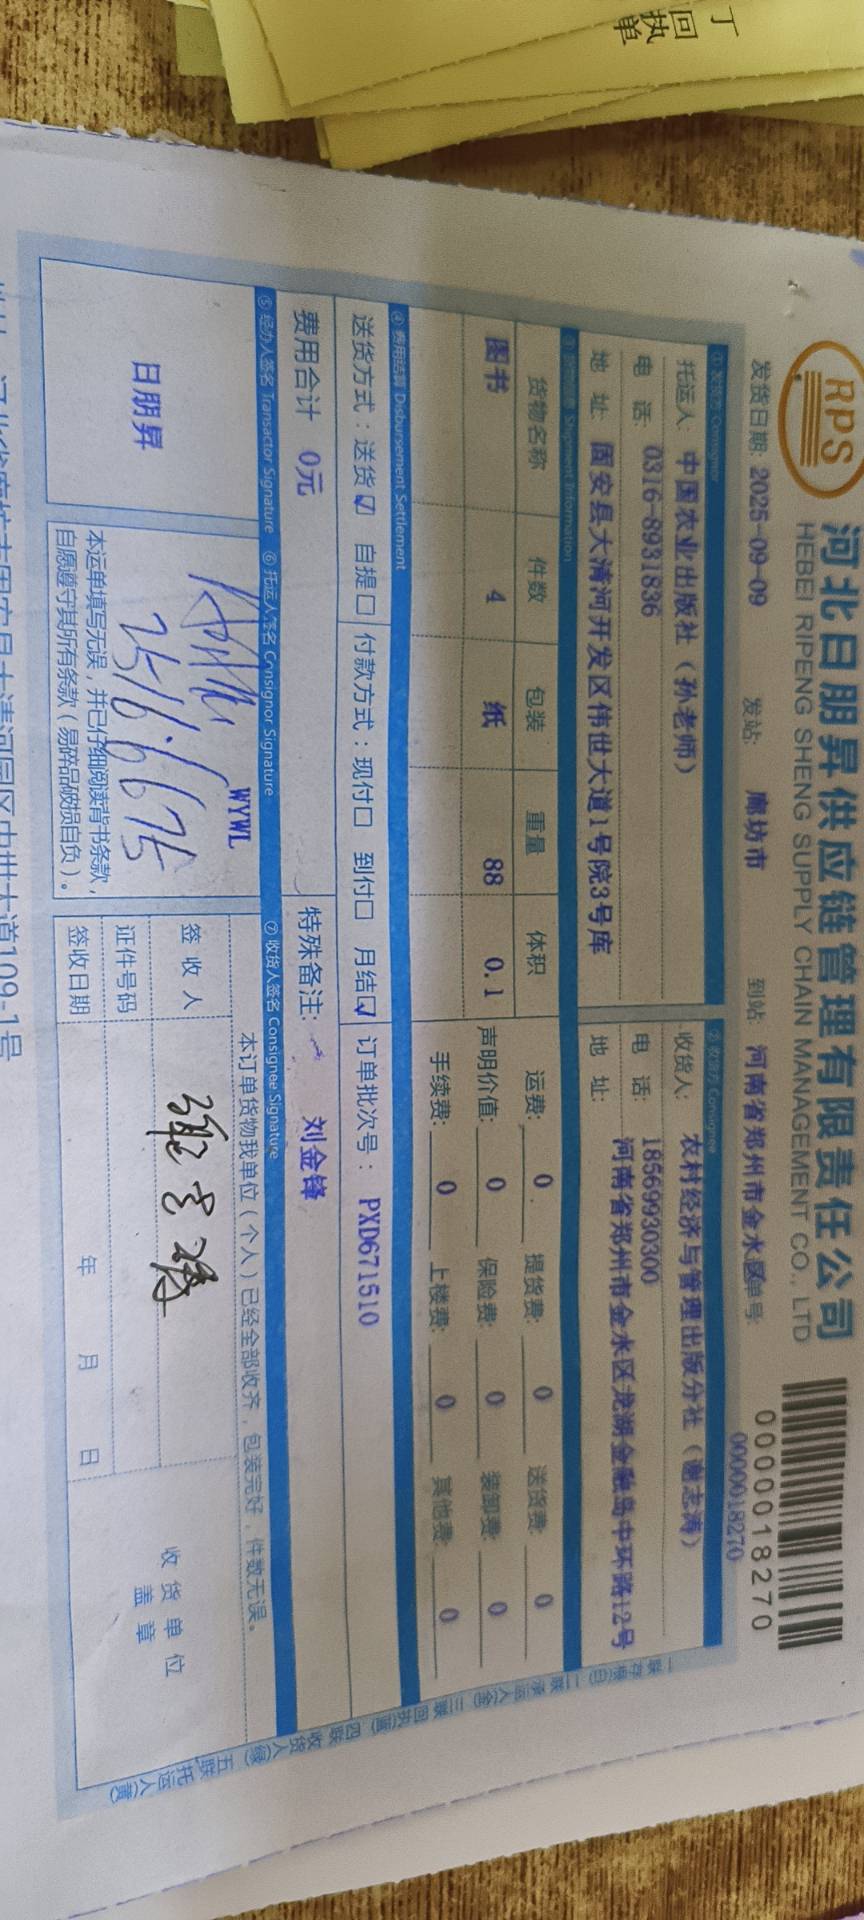 丁
回执单
RPS
河北日朋昇供应链管理有限责任公司
HEBEI RIPENG SHENG SUPPLY CHAIN MANAGEMENT CO., LTD
0000018270
发货日期: 2025-09-09 发站: 廊坊市 到站: 河南省郑州市金水区 单号: 0000018270
① 发货方 Consignor ② 收货方 Consignee
托运人: 中国农业出版社（孙老师） 收货人: 农村经济与管理出版分社（谢志涛）
电 话: 0316-8931836 电 话: 18569930300
地 址: 固安县大清河开发区伟世大道1号院3号库 地 址: 河南省郑州市金水区龙湖金融岛中环路12号
③ Shipment Information
货物名称 件数 包装 重量 体积 运费: 0 提货费: 0 送货费: 0
图书 4 纸 88 0.1 声明价值: 0 保险费: 0 装卸费: 0
手续费: 0 上楼费: 0 其他费: 0
④ 费用结算 Disbursement Settlement
送货方式：送货☑ 自提□ 付款方式：现付□ 到付□ 月结☑ 订单批次号： PXD671510
费用合计 0元 特殊备注: 刘金锋
⑤ 经办人签名 Transactor Signature ⑥ 托运人签名 Consignor Signature ⑦ 收货人签名 Consignee Signature
日朋昇
WYWL
本运单填写无误，并已仔细阅读背书条款，
自愿遵守其所有条款（易碎品破损自负）。
本订单货物我单位（个人）已经全部收齐，包装完好，件数无误。
签 收 人
证件号码
签收日期 年 月 日
收 货 单 位
盖 章
一联存根(白) 二联承运人(金) 三联回执(蓝) 四联收货人(绿) 五联托运人(黄)